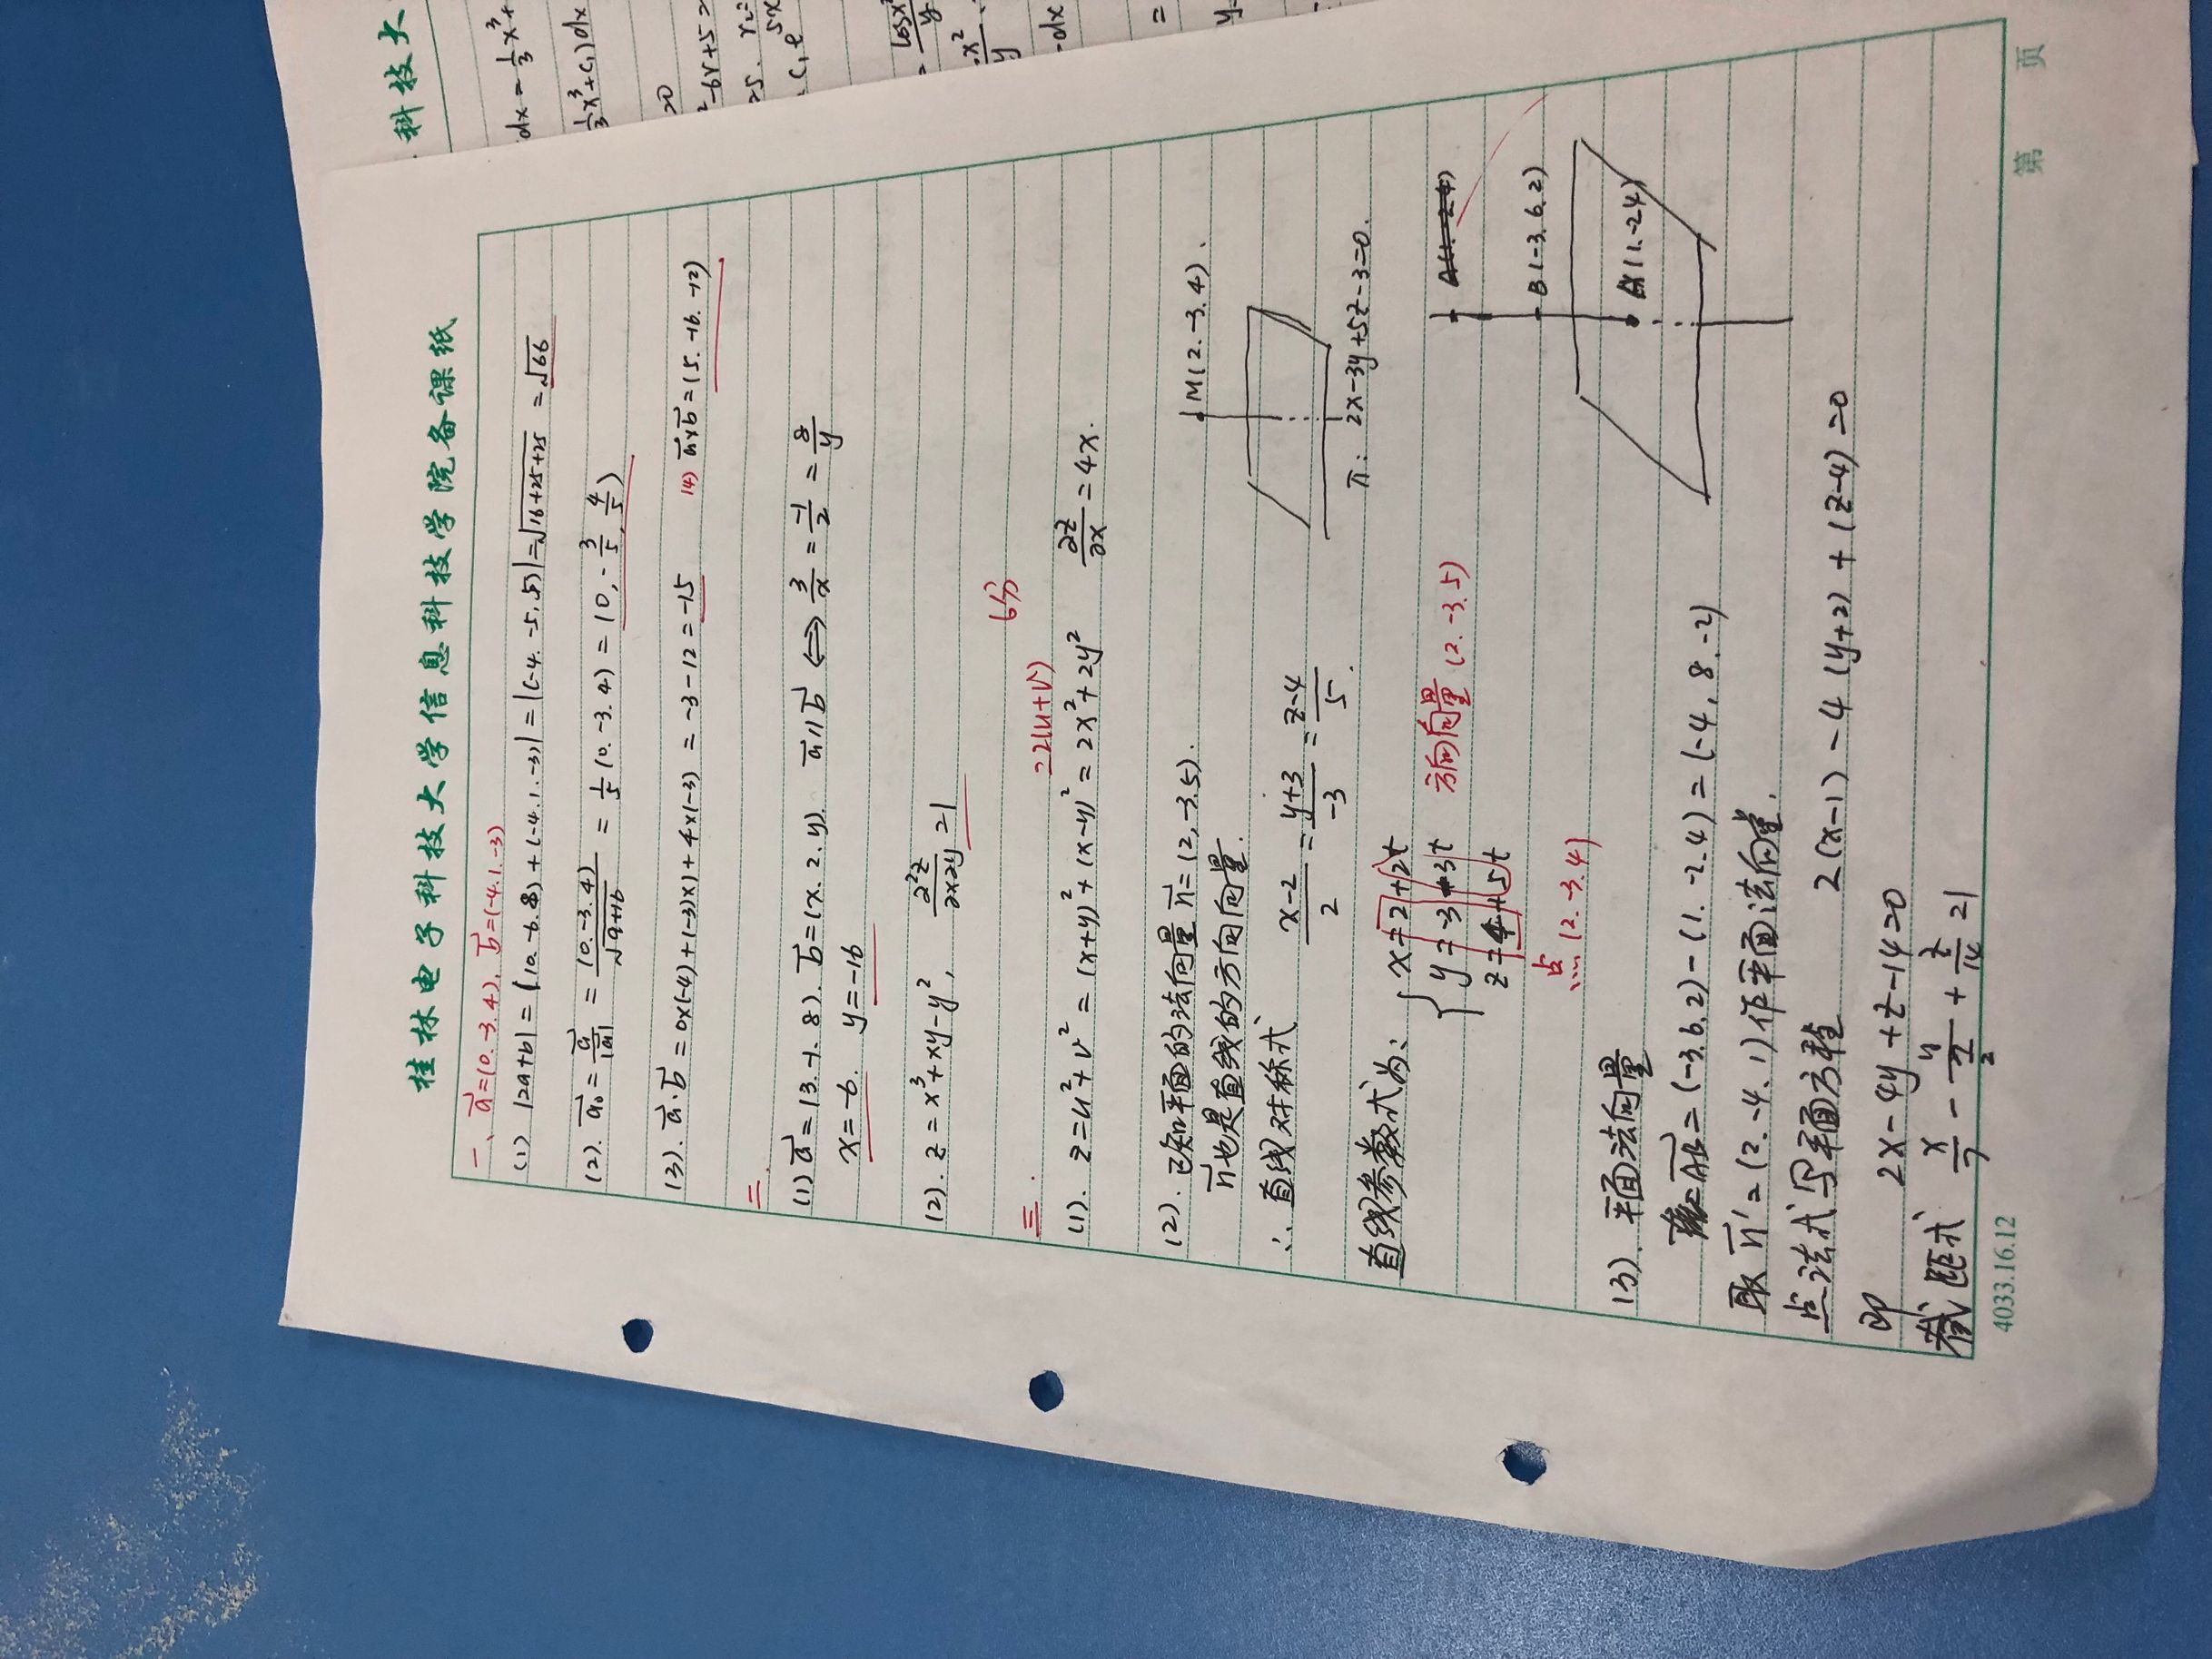 桂林电子科技大学信息科技学院备课纸
一、a⃗=(0.-3.4), b⃗=(-4.1.-3)
(1) |2a+b| = |(0.-6.8)+(-4.1.-3)| = |(-4.-5.5)| = √16+25+25 = √66
(2). a⃗₀ = a⃗/|a⃗| = (0.-3.4)/√9+16 = 1/5 (0.-3.4) = (0, -3/5, 4/5)
(3). a⃗·b⃗ = 0×(-4)+(-3)×1+4×(-3) = -3-12 = -15 (4) a⃗×b⃗ = (5.-16.-12)
二.
(1) a⃗=(3.-1.8). b⃗=(x.2.y). a⃗∥b⃗ ⟺ 3/x = -1/2 = 8/y
x=-6. y=-16
(2). z=x³+xy-y², ∂²z/∂x∂y =1
6分
三.
=2(u+v)
(1). z=u²+v² = (x+y)²+(x-y)² = 2x²+2y² ∂z/∂x = 4x.
(2). 已知平面的法向量 n⃗=(2,-3.5).
M(2.-3.4).
n⃗也是直线的方向向量.
∴ 直线对称式 (x-2)/2 = (y+3)/-3 = (z-4)/5.
π: 2x-3y+5z-3=0.
直线参数式为:
x=2+2t
y=-3-3t 方向向量(2.-3.5)
z=4+5t
点(2.-3.4)
A(1.-2.4)
B(-3.6.2)
A(1.-2.4)
(3). 平面法向量
AB⃗=(-3.6.2)-(1.-2.4)=(-4,8.-2)
取 n⃗'=(2.-4.1)作平面法向量.
点法式写平面方程 2(x-1)-4(y+2)+(z-4)=0
即 2x-4y+z-14=0
截距式 x/7 - y/(7/2) + z/14 =1
4033.16.12
第 页
科技大
dx = 1/3 x³+
1/3 x³+C₁)dx
=0
²-6r+5=
=5. r₂=
C₁e 5x
= cosx²/y
x²/y
-dx
=
y